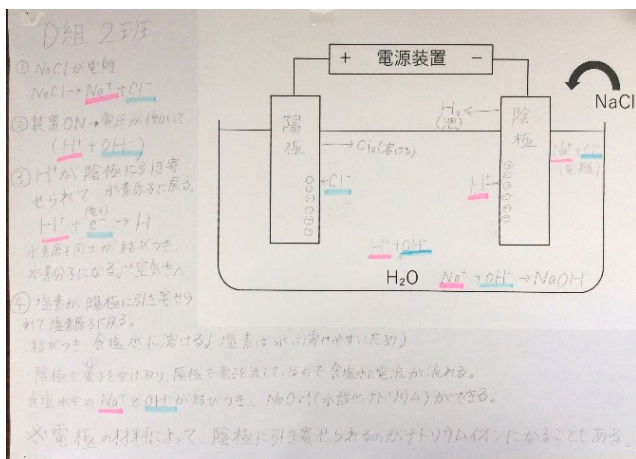 D組 2班
① NaClが電離
NaCl→Na⁺+Cl⁻
② 装置ON→電圧が働いて
(H⁺+OH⁻)
③ H⁺が陰極に引き寄
せられて、水素原子に戻る。
H⁺+e⁻→H
水素原子同士が結びつき、
水素分子になる。→空気中へ
④ 塩素が陽極に引き寄せら
れて塩素原子に戻る。
結びつき、食塩水に溶ける(塩素は水に溶けやすいため)
陰極で電子を受け取り、陽極で電子を流しているので食塩水に電流が流れる。
食塩水中のNa⁺とOH⁻が結びつき、NaOH(水酸化ナトリウム)ができる。
※電極の材料によって、陰極に引き寄せられるのがナトリウムイオンになることもある。
+ 電源装置 −
NaCl
陽極
→Cl₂(溶ける)
←Cl⁻
H₂←
陰極
H⁺→
Na⁺+Cl⁻
(電離)
H⁺+OH⁻
H₂O
Na⁺+OH⁻→NaOH